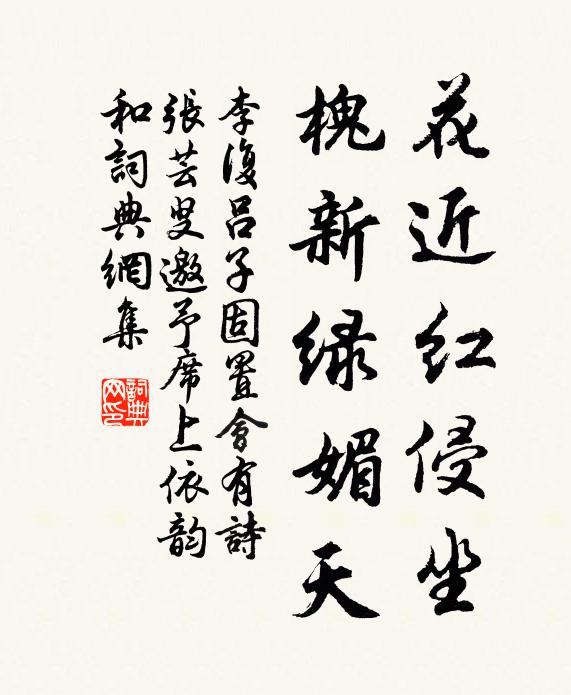 花近红侵坐
槐新绿媚天
李復呂子固置會有詩
張芸叟邀予席上依韵
和詞典網集
詞典
网印